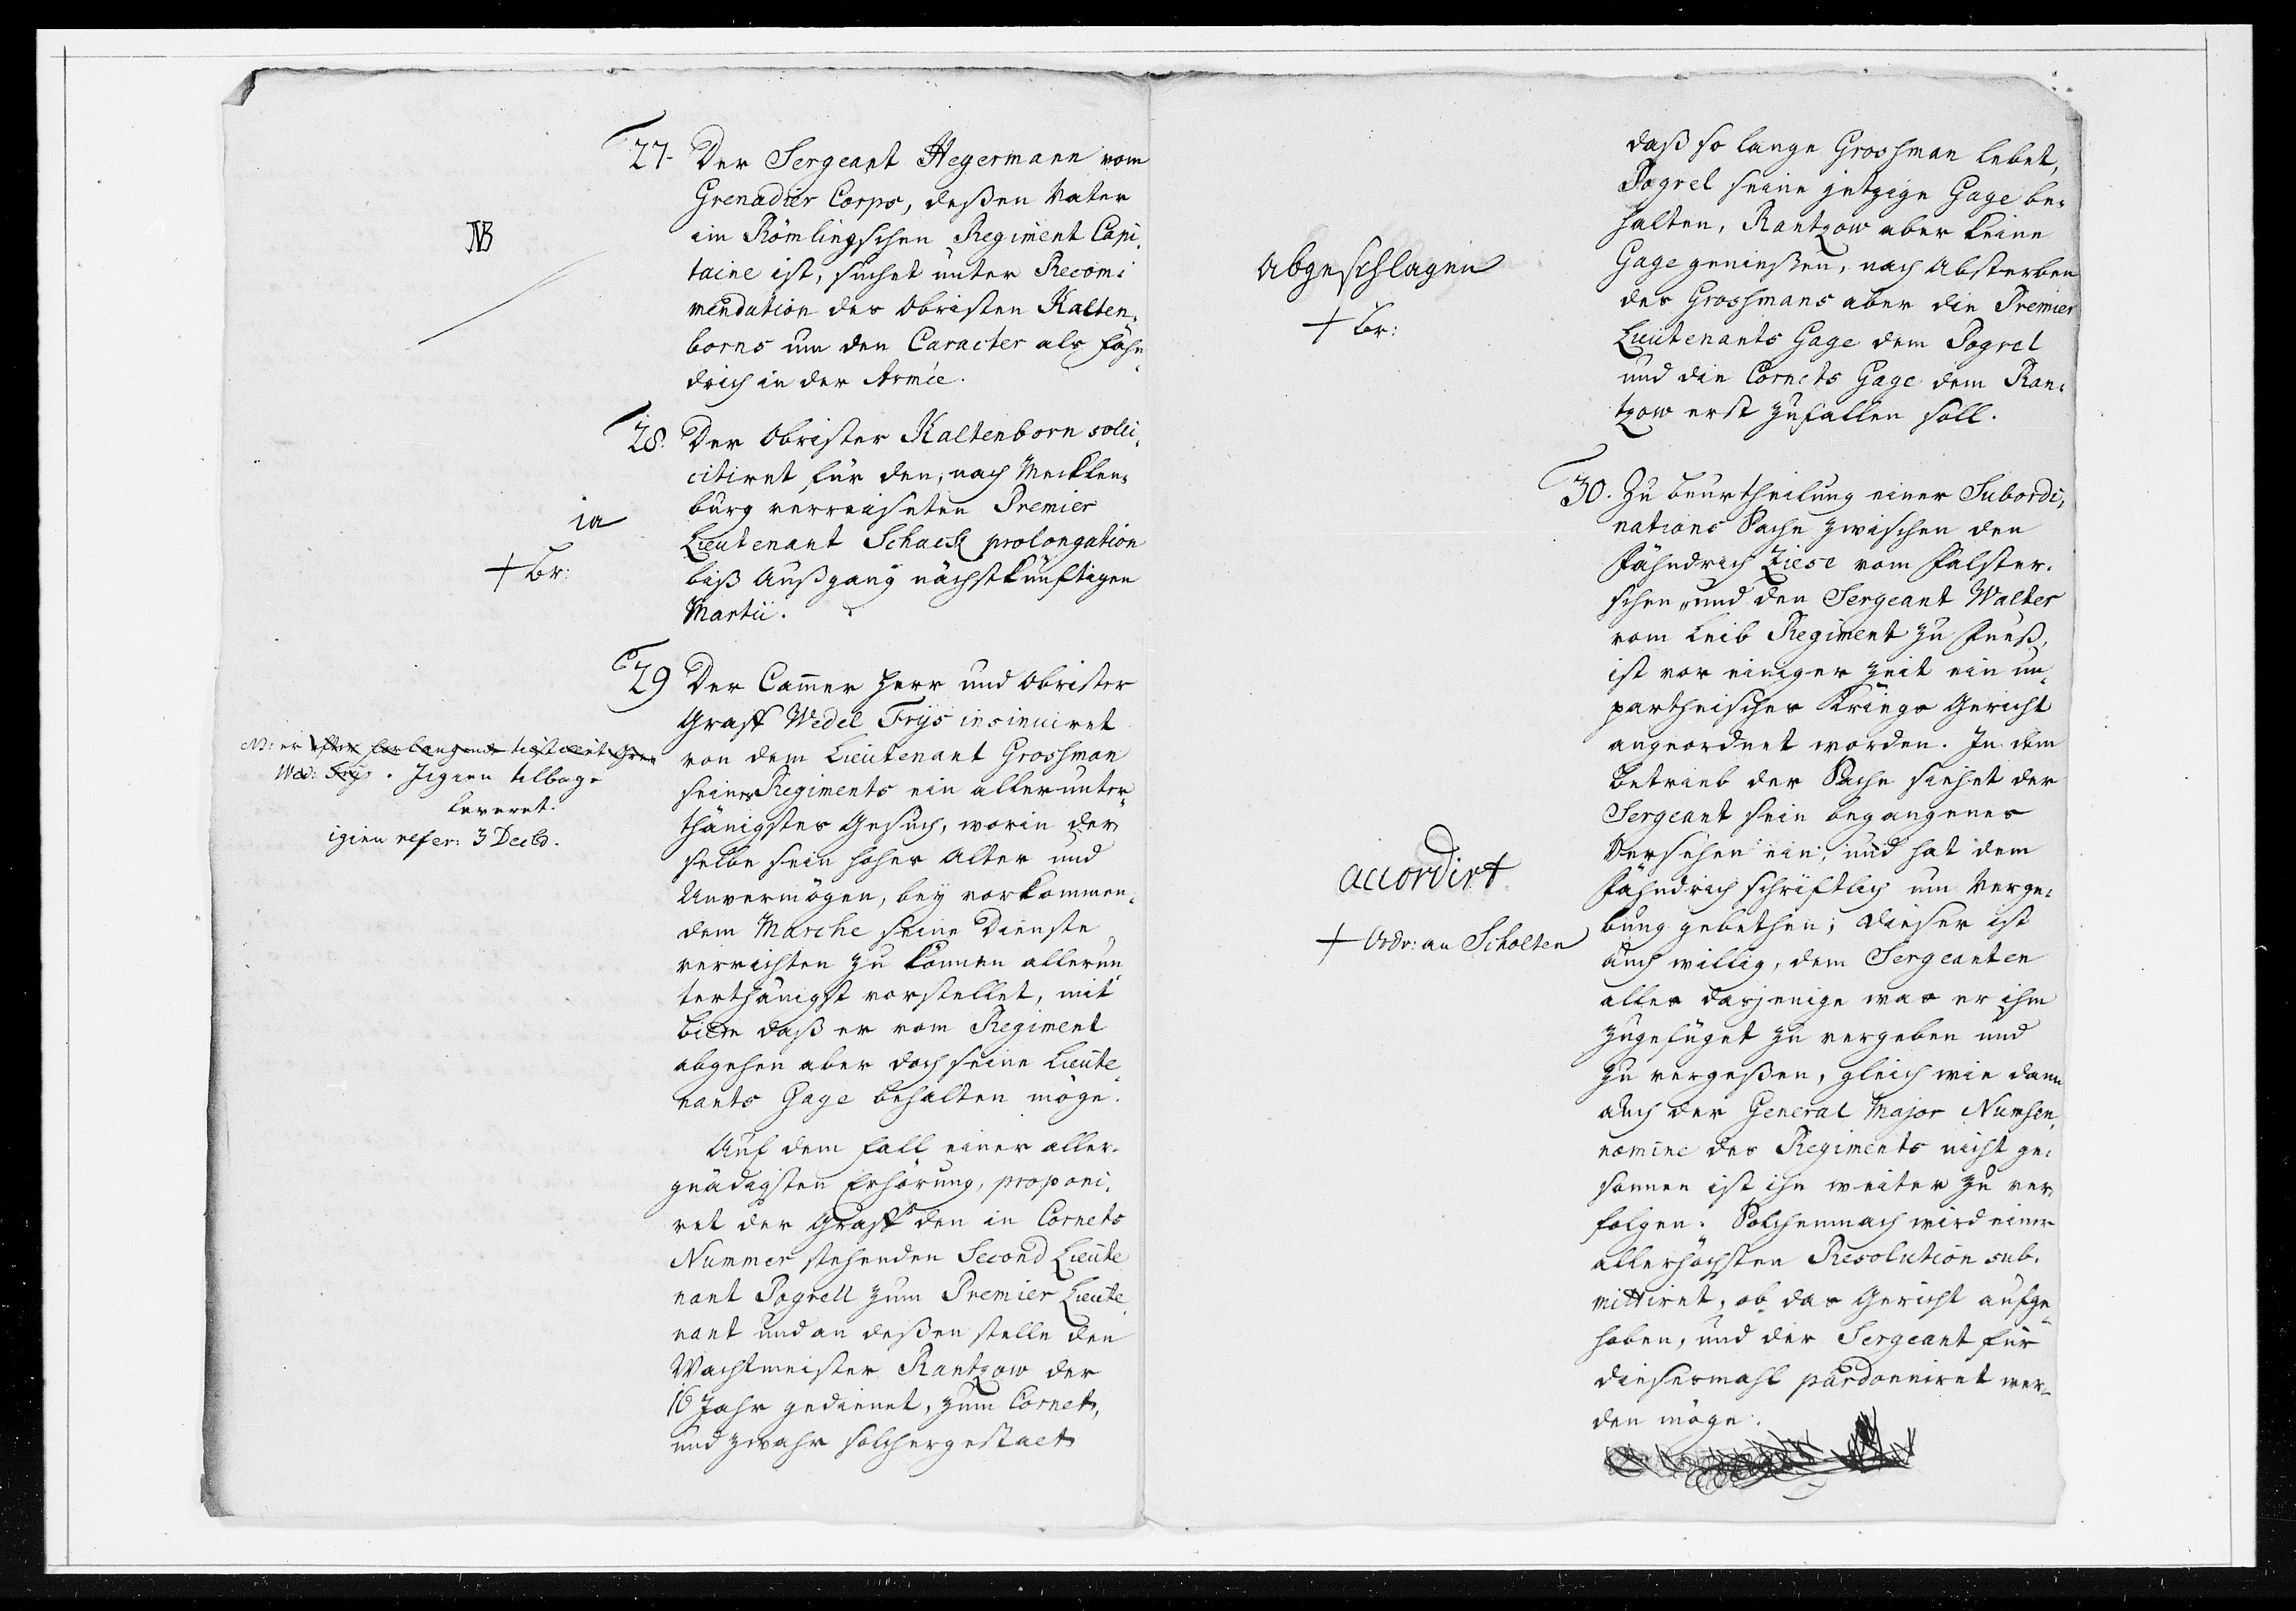 27. Der Sergeant Hegermann vom
Grenadier Corps, deßen Vater
im Römlingschen Regiment Capi¬
taine ist, suchet unter Recom¬
mendation des Obristen Kalten¬
borns um den Caracter als Fähn¬
drich in der Armée.
NB
28. Der Obrister Kaltenborn solli¬
citiret für den, nach Mecklen¬
burg verreiseten Premier
Lieutenant Schack prolongation
biß Außgang nächstkünftigen
Martii.
ia
+ Br:
29 Der Cammer Herr und Obrister
Graff Wedel Frys insinuiret
von dem Lieutenant Groshman
seines Regiments ein allerunter¬
thänigstes Gesuch, worin der¬
selbe sein hohes Alter und
Unvermögen, bey vorkommen¬
dem Marche seine Dienste
verrichten zu können allerun¬
terthänigst vorstellet, mit
bitte daß er vom Regiment
abgehen aber doch seine Lieute¬
nants Gage behalten möge.
NB: er efter forlangende
Wed: Frijs. Igien tilbage
leveret.
igien refer: 3 Decb.
Auf dem Fall einer aller¬
gnädigsten Erhörung, proponi¬
ret der Graff den in Cornets
Nummer stehenden Second Lieute¬
nant Pogrell zum Premier Lieute¬
nant und an deßen stelle den
Wachtmeister Rantzow der
16 Jahr gedienet, zum Cornet,
und zwahr solchergestalt
daß so lange Groshman lebet,
Pogrel seine jetzige Gage be¬
halten, Rantzow aber keine
Gage genießen, nach Absterben
des Groshmans aber die Premier
Lieutenants Gage dem Pogrel
und die Cornets Gage dem Ran¬
tzow erst zufallen soll.
Abgeschlagen
+ Br:
30. Zu beurtheilung einer Subordi¬
nations Sache zwischen den
Fähndrich Ziese vom Falster¬
schen, und den Sergeant Walter
vom Leib Regiment zu Fueß,
ist vor einiger Zeit ein un¬
partheisches Kriegs Gericht
angeordnet worden. In dem
Betrieb der Sache siehet der
Sergeant sein begangenes
Versehen ein, und hat dem
Fähndrich schriftlich um Verge¬
bung gebethen; dieser ist
auch willig, dem Sergeanten
alles dasjenige was er ihm
zugefüget zu vergeben und
zu vergeßen, gleich wie dann
auch der General Major Numsen,
nomine des Regiments nicht ge¬
sonnen ist ihn weiter zu ver¬
folgen. Solchemnach wird einer
allerhöchsten Resolution sub¬
mittiret, ob das Gericht aufge¬
hoben, und der Sergeant für
diesesmahl pardonniret wer¬
den möge.
accordirt
+ Ordr: an Scholten